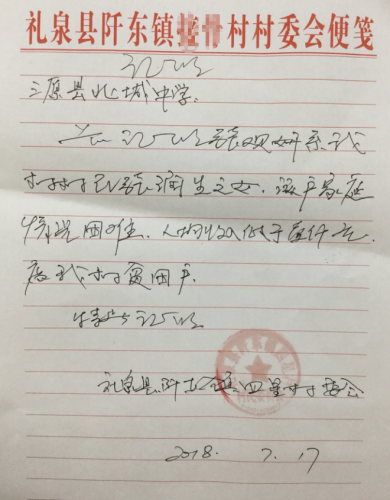 礼泉县阡东镇村村委会便笺
证明
三原县北城中学:
兹证明系我
村村民润生之女,该户家庭
情况困难,人均收入低于仟元,
属我村贫困户.
特此证明
礼泉县阡东镇四星村委会
2018. 7. 17